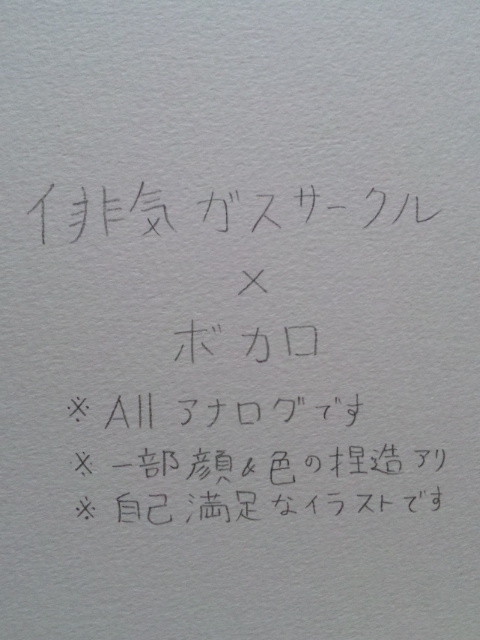 俳気ガスサークル
×
ボカロ
※ All アナログです
※ 一部顔&色の捏造アリ
※ 自己満足なイラストです